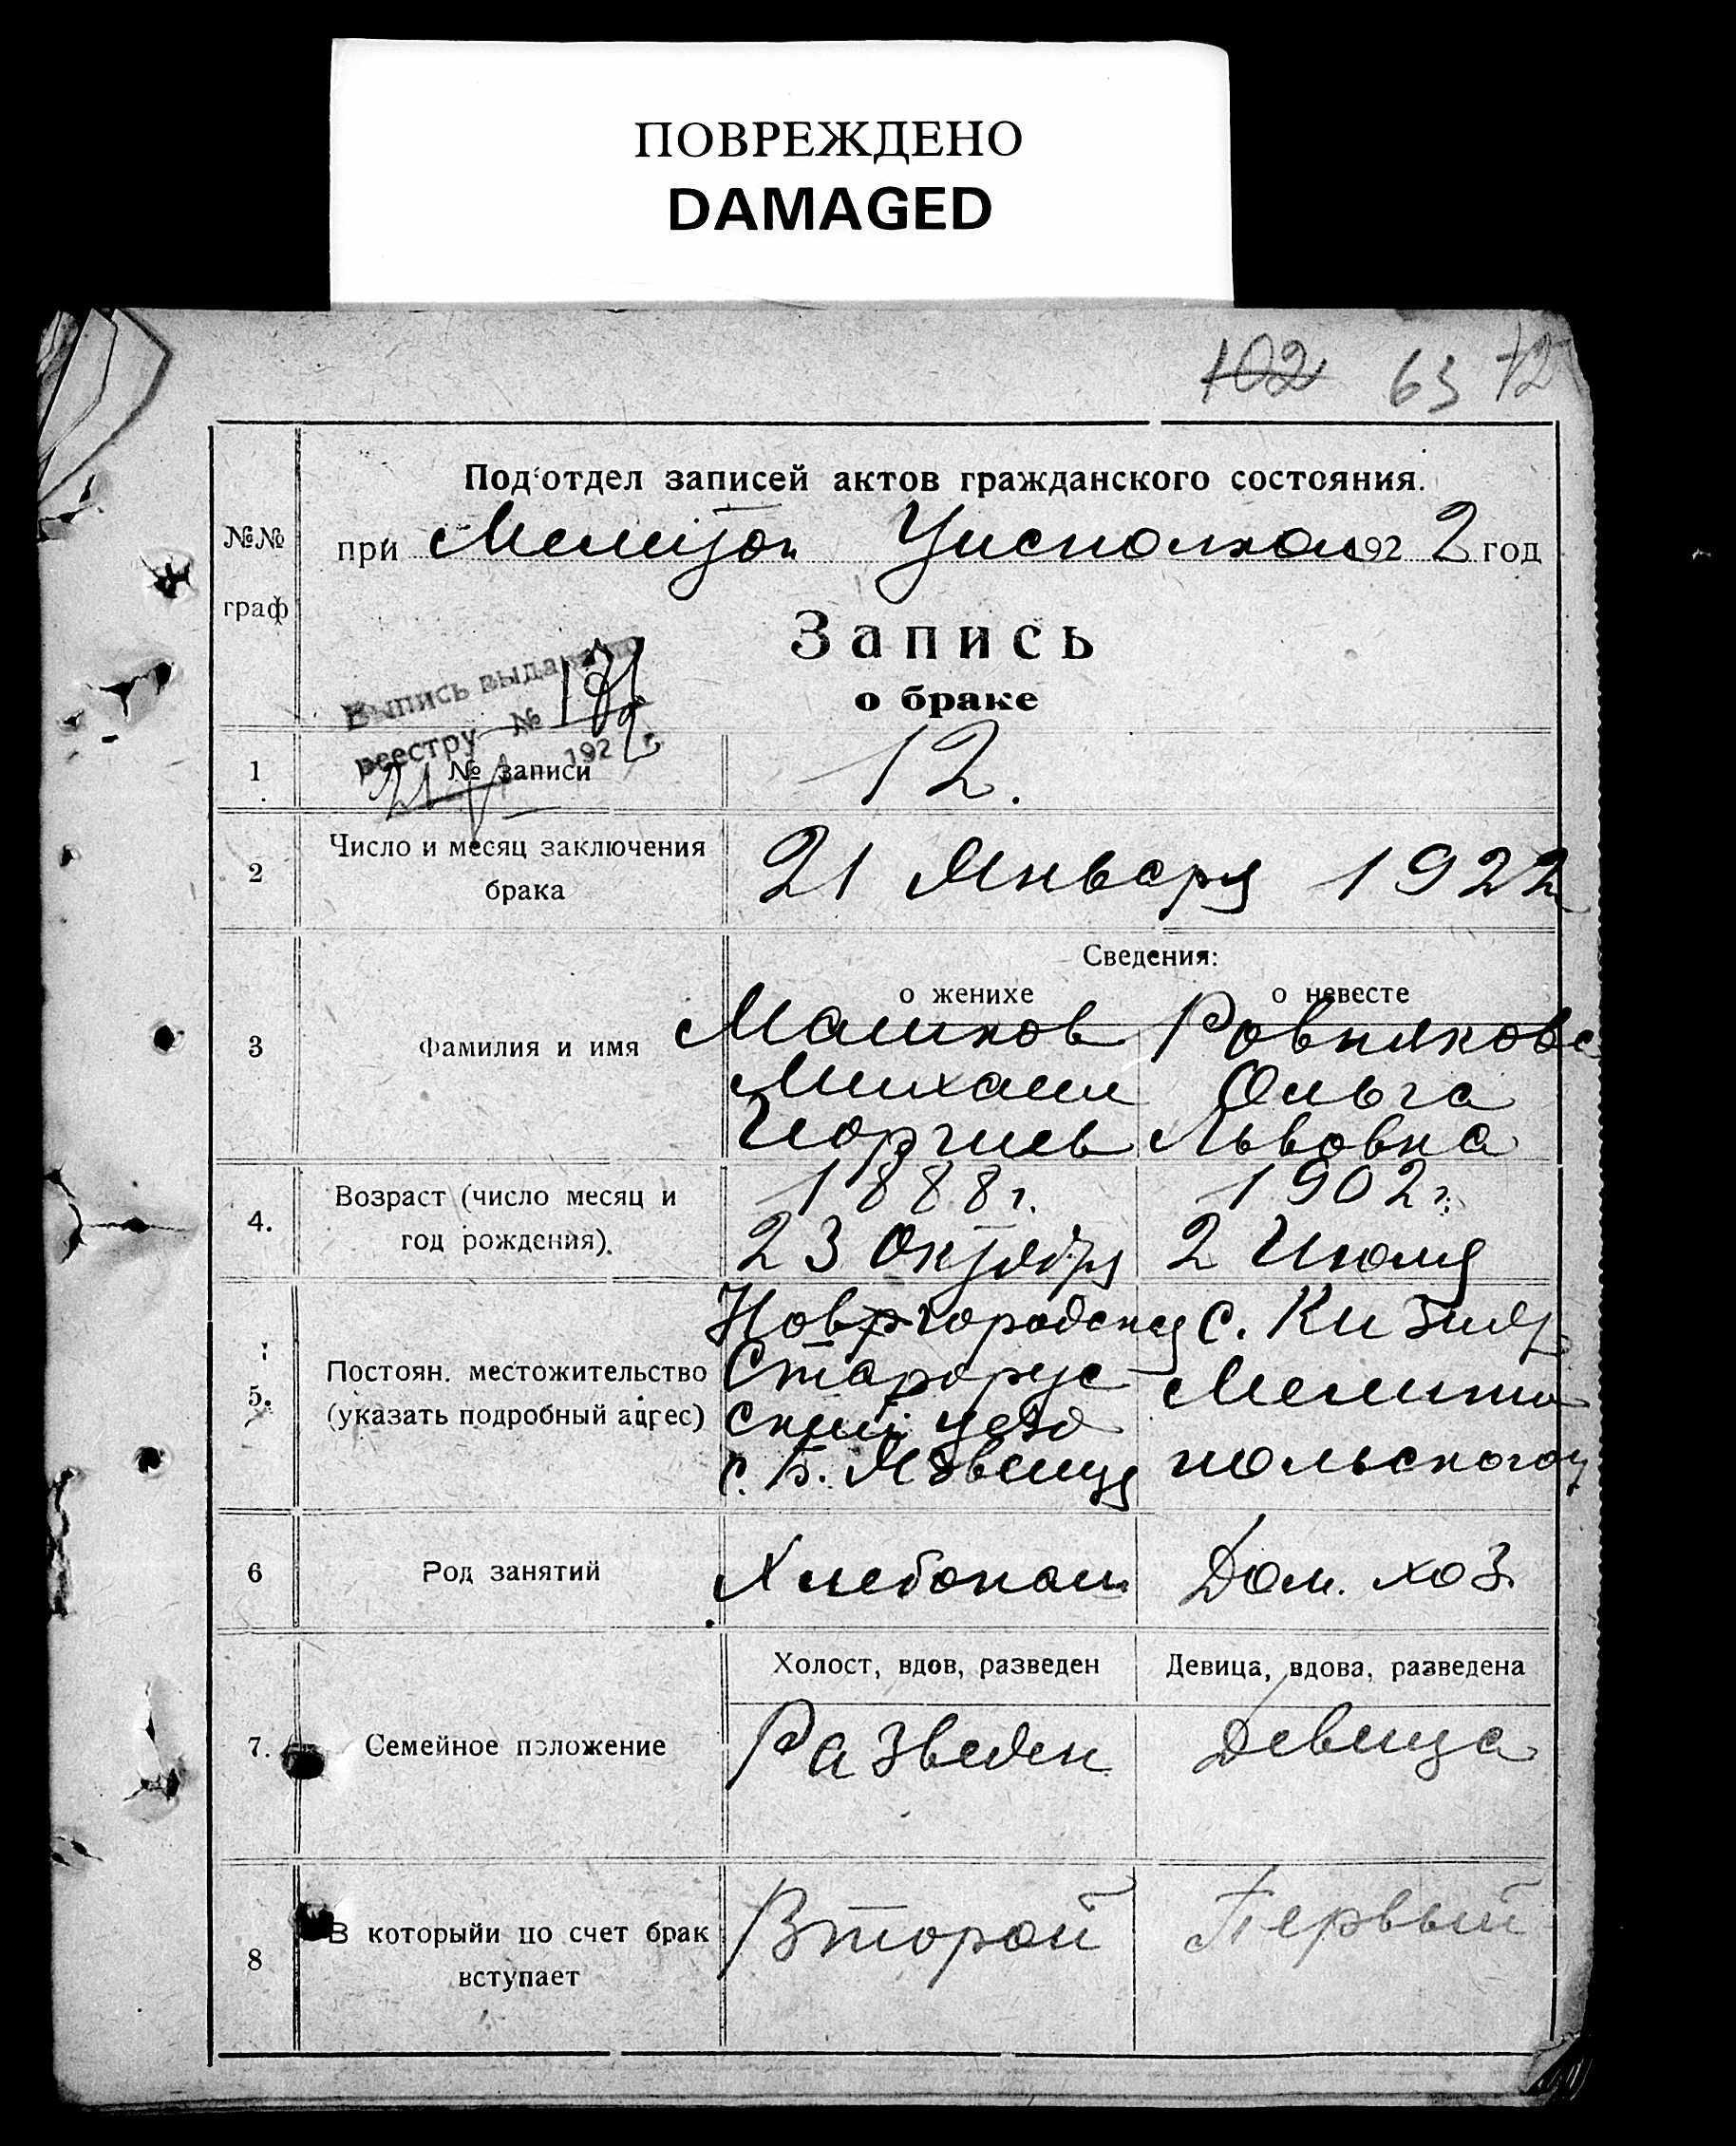 ПОВРЕЖДЕНО
DAMAGED
102 63 72
Под'отдел записей актов гражданского состояния.
№№
граф
при Мелитоп Уисполком 1922 год
Запись
о браке
Выпись выдана по
реестру №
21/I 192 г.
1 № записи 12.
2 Число и месяц заключения
брака
21 Января 1922
Сведения:
о женихе о невесте
3 Фамилия и имя
Машков Ровнякова
Михаил Ольга
Георгиев Львовна
4. Возраст (число месяц и
год рождения).
1888 г. 1902 г.
23 Октября 2 Июля
5. Постоян. местожительство
(указать подробный адрес)
Новгородская с. Кизияр
Старорус Мелито
ский уезд польского у
с. Б. Язвище
6 Род занятий Хлебопаш Дом. хоз.
Холост, вдов, разведен Девица, вдова, разведена
7. Семейное положение Разведен Девица
8 В которыйи по счет брак
вступает
Второй Первый